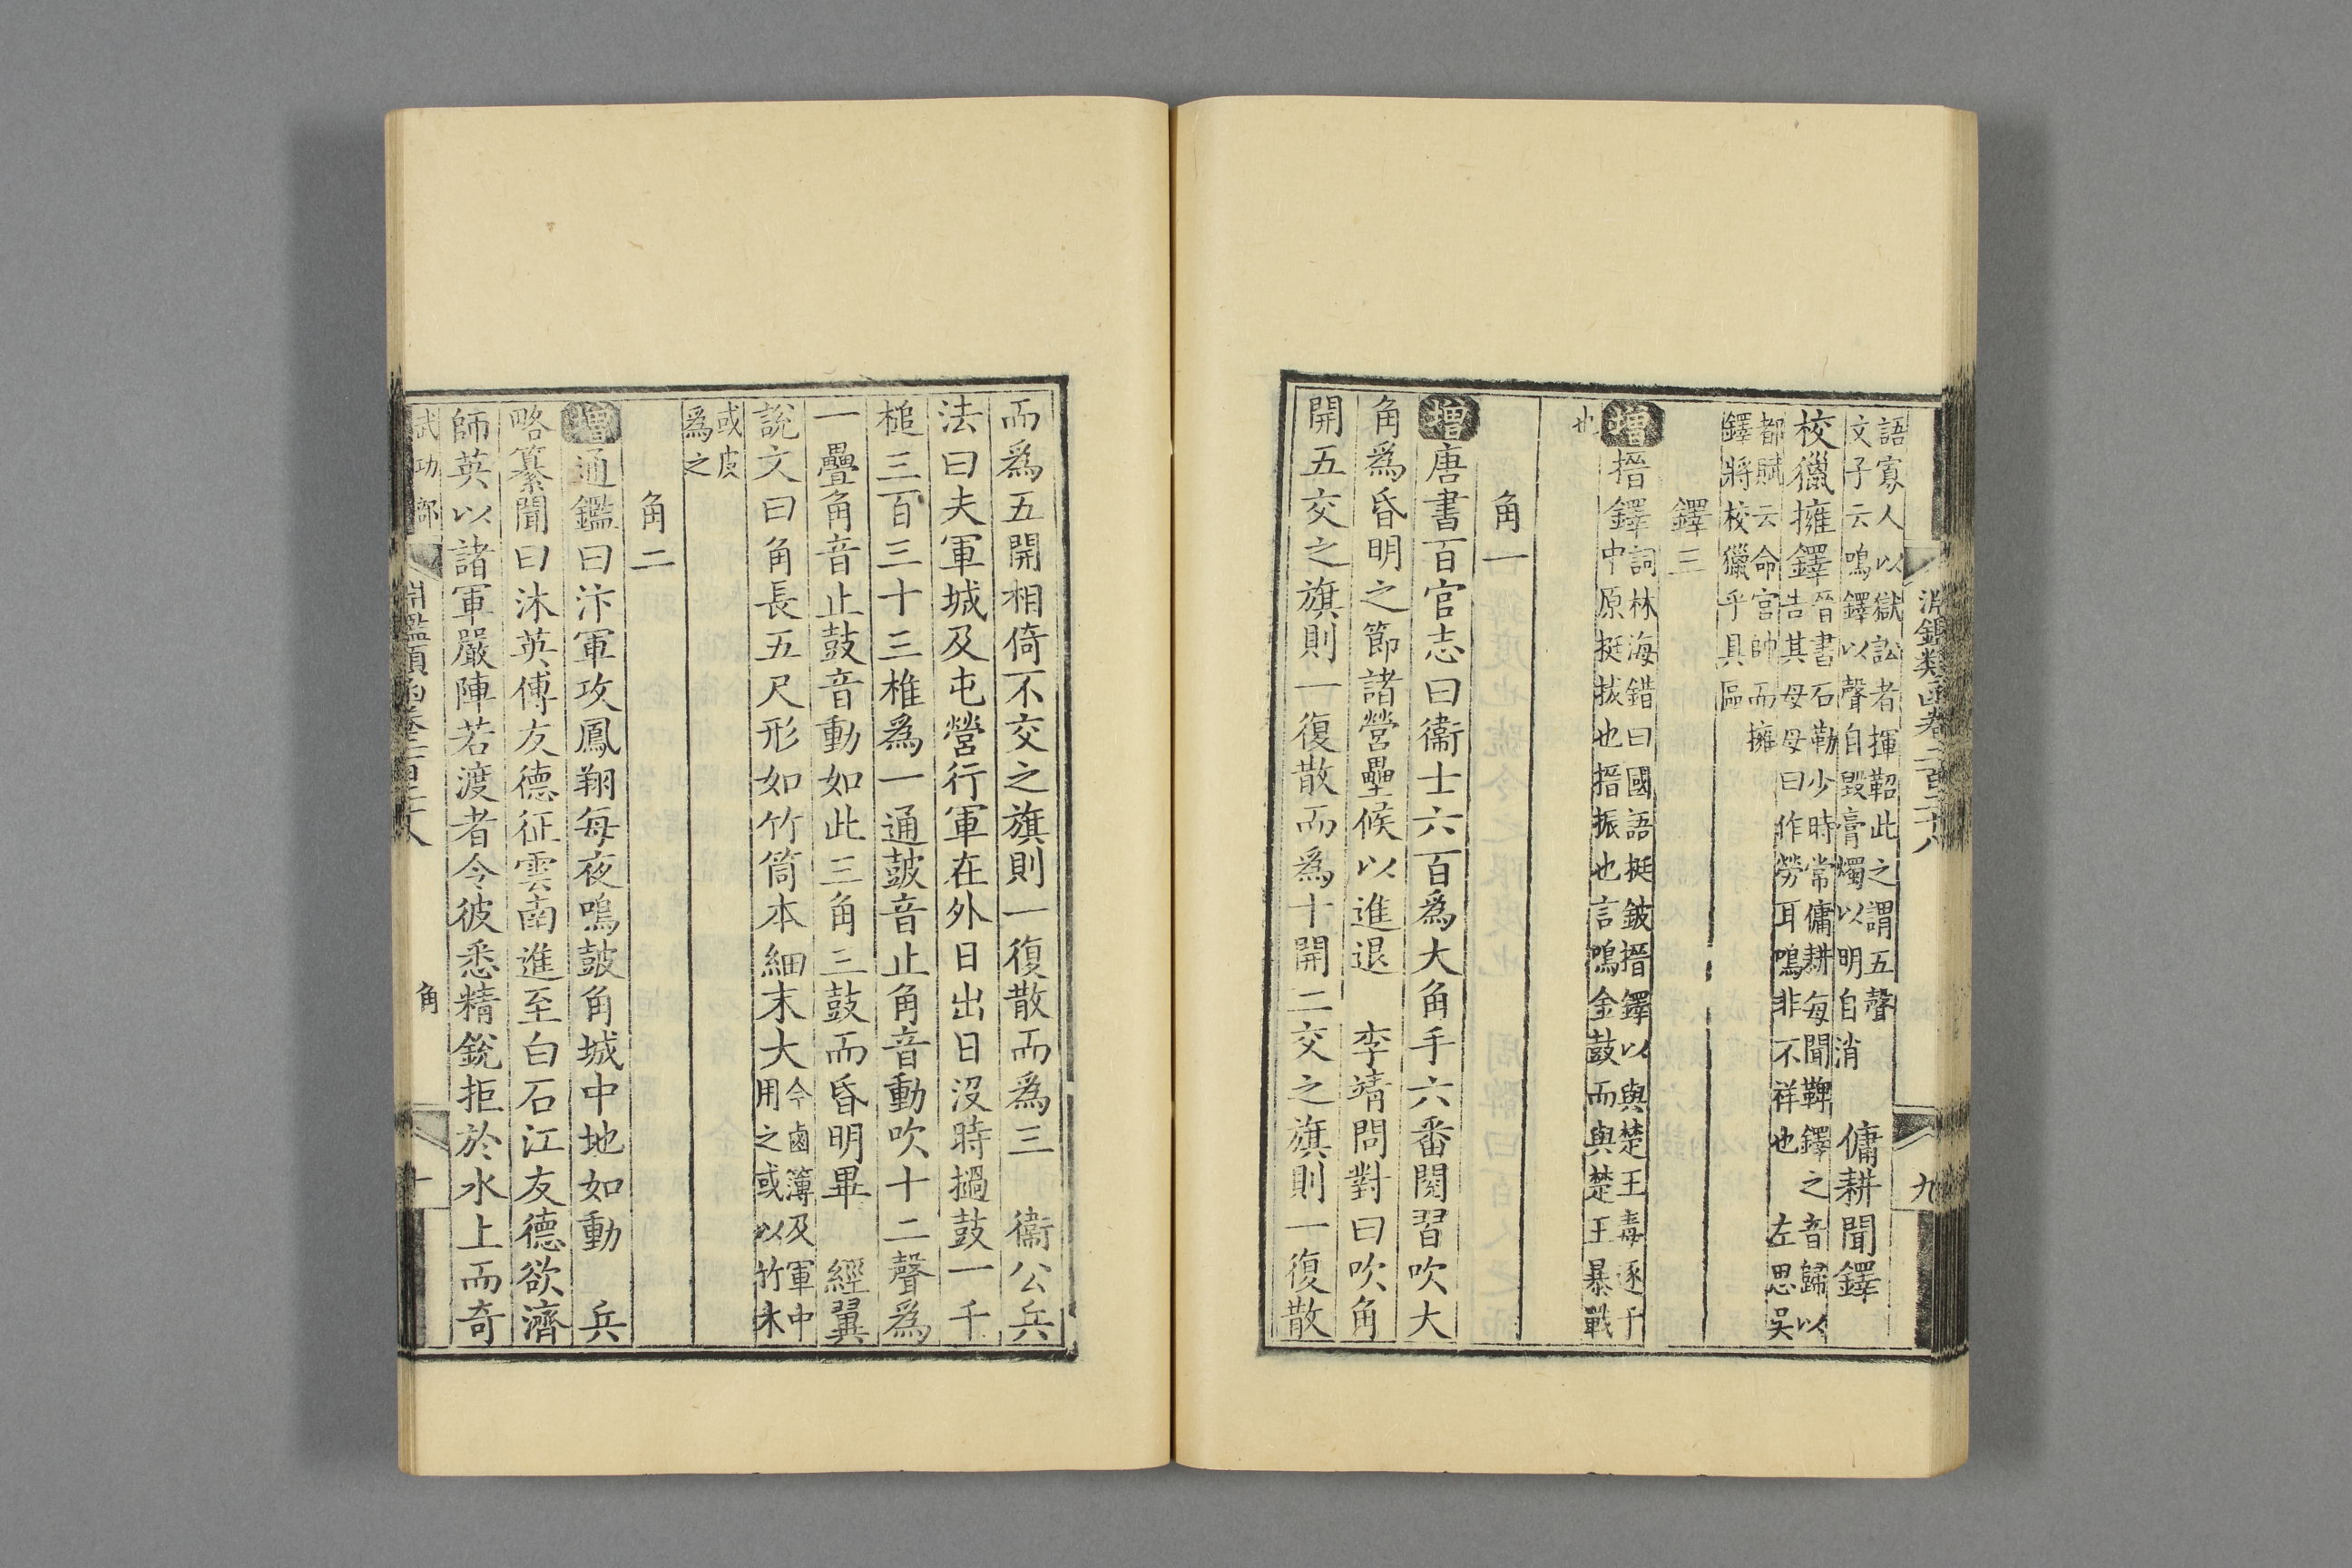 淵鑑類函卷二百二十八
九
語寡人以獄訟者揮鞀此之謂五聲
文子云鳴鐸以聲自毀膏燭以明自消
傭耕聞鐸
校獵擁鐸
晉書石勒少時常傭耕每聞鞞鐸之音歸以
告其母母曰作勞耳鳴非不祥也
左思吳
都賦云命官帥而擁
鐸將校獵乎具區
鐸三
增搢鐸
詞林海錯曰國語挺鈹搢鐸以與楚王毒逐于
中原挺拔也搢振也言鳴金鼓而與楚王暴戰
也
角一
增唐書百官志曰衞士六百為大角手六番閱習吹大
角為昏明之節諸營壘候以進退 李靖問對曰吹角
開五交之旗則一復散而為十開二交之旗則一復散
而為五開相倚不交之旗則一復散而為三 衞公兵
法曰夫軍城及屯營行軍在外日出日沒時撾鼓一千
槌三百三十三椎為一通鼓音止角音動吹十二聲為
一疊角音止鼓音動如此三角三鼓而昏明畢 經翼
說文曰角長五尺形如竹筒本細末大
今鹵簿及軍中
用之或以竹木
或皮
為之
角二
增通鑑曰汴軍攻鳳翔每夜鳴鼓角城中地如動 兵
略纂聞曰沐英傅友德征雲南進至白石江友德欲濟
師英以諸軍嚴陣若渡者令彼悉精銳拒於水上而奇
武功部
淵鑑類函卷二百二十八
角
十